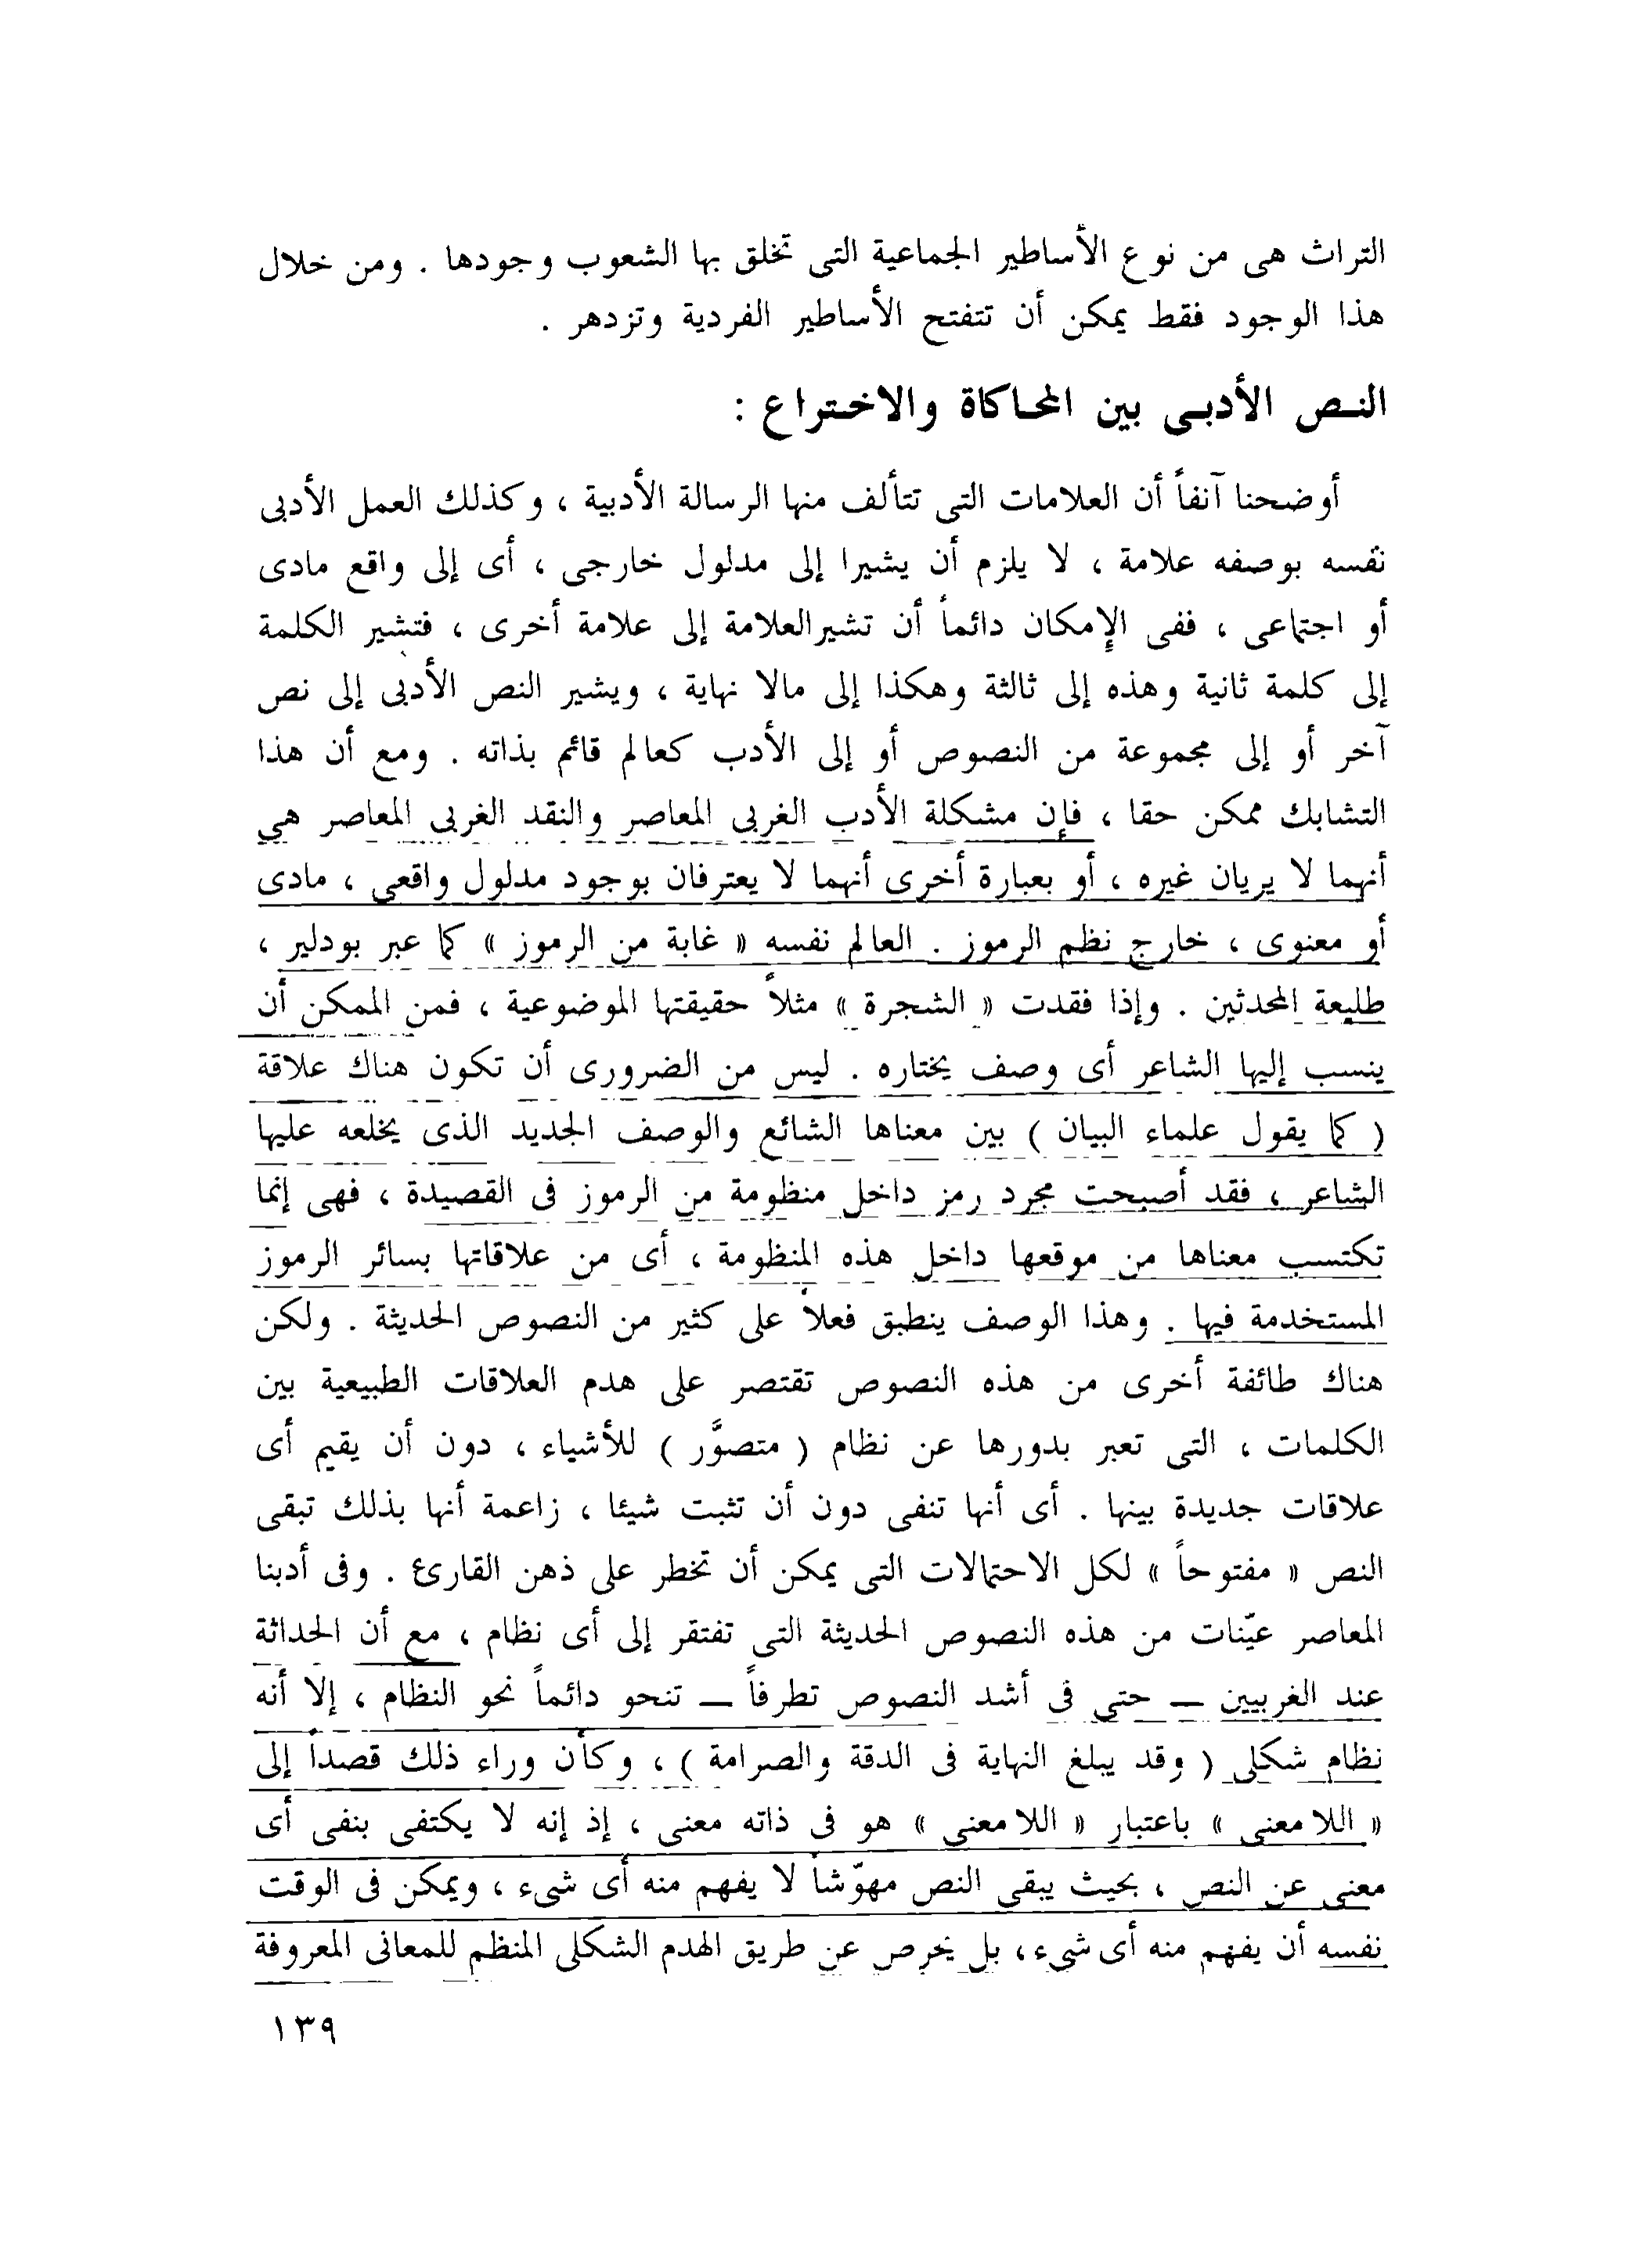 التراث هى من نوع الأساطير الجماعية التى تخلق بها الشعوب وجودها . ومن خلال
هذا الوجود فقط يمكن أن تتفتح الأساطير الفردية وتزدهر .
النـص الأدبـى بين المحـاكاة والاخـتراع :
أوضحنا آنفاً أن العلامات التى تتألف منها الرسالة الأدبية ، وكذلك العمل الأدبى
نفسه بوصفه علامة ، لا يلزم أن يشيرا إلى مدلول خارجى ، أى إلى واقع مادى
أو اجتماعى ، ففى الإمكان دائماً أن تشيرالعلامة إلى علامة أخرى ، فتشير الكلمة
إلى كلمة ثانية وهذه إلى ثالثة وهكذا إلى مالا نهاية ، ويشير النص الأدبى إلى نص
آخر أو إلى مجموعة من النصوص أو إلى الأدب كعالم قائم بذاته . ومع أن هذا
التشابك ممكن حقا ، فإن مشكلة الأدب الغربى المعاصر والنقد الغربى المعاصر هى
أنهما لا يريان غيره ، أو بعبارة أخرى أنهما لا يعترفان بوجود مدلول واقعى ، مادى
أو معنوى ، خارج نظم الرموز . العالم نفسه « غابة من الرموز » كما عبر بودلير ،
طليعة المحدثين . وإذا فقدت « الشجرة » مثلاً حقيقتها الموضوعية ، فمن الممكن أن
ينسب إليها الشاعر أى وصف يختاره . ليس من الضرورى أن تكون هناك علاقة
( كما يقول علماء البيان ) بين معناها الشائع والوصف الجديد الذى يخلعه عليها
الشاعر ، فقد أصبحت مجرد رمز داخل منظومة من الرموز فى القصيدة ، فهى إنما
تكتسب معناها من موقعها داخل هذه المنظومة ، أى من علاقاتها بسائر الرموز
المستخدمة فيها . وهذا الوصف ينطبق فعلاً على كثير من النصوص الحديثة . ولكن
هناك طائفة أخرى من هذه النصوص تقتصر على هدم العلاقات الطبيعية بين
الكلمات ، التى تعبر بدورها عن نظام ( متصوَّر ) للأشياء ، دون أن يقيم أى
علاقات جديدة بينها . أى أنها تنفى دون أن تثبت شيئا ، زاعمة أنها بذلك تبقى
النص « مفتوحاً » لكل الاحتمالات التى يمكن أن تخطر على ذهن القارئ . وفى أدبنا
المعاصر عيّنات من هذه النصوص الحديثة التى تفتقر إلى أى نظام ، مع أن الحداثة
عند الغربيين — حتى فى أشد النصوص تطرفاً — تنحو دائماً نحو النظام ، إلا أنه
نظام شكلى ( وقد يبلغ النهاية فى الدقة والصرامة ) ، وكأن وراء ذلك قصداً إلى
« اللا معنى » باعتبار « اللا معنى » هو فى ذاته معنى ، إذ إنه لا يكتفى بنفى أى
معنى عن النص ، بحيث يبقى النص مهوّشاً لا يفهم منه أى شىء ، ويمكن فى الوقت
نفسه أن يفهم منه أى شىء ، بل يحرص عن طريق الهدم الشكلى المنظم للمعانى المعروفة
١٣٩